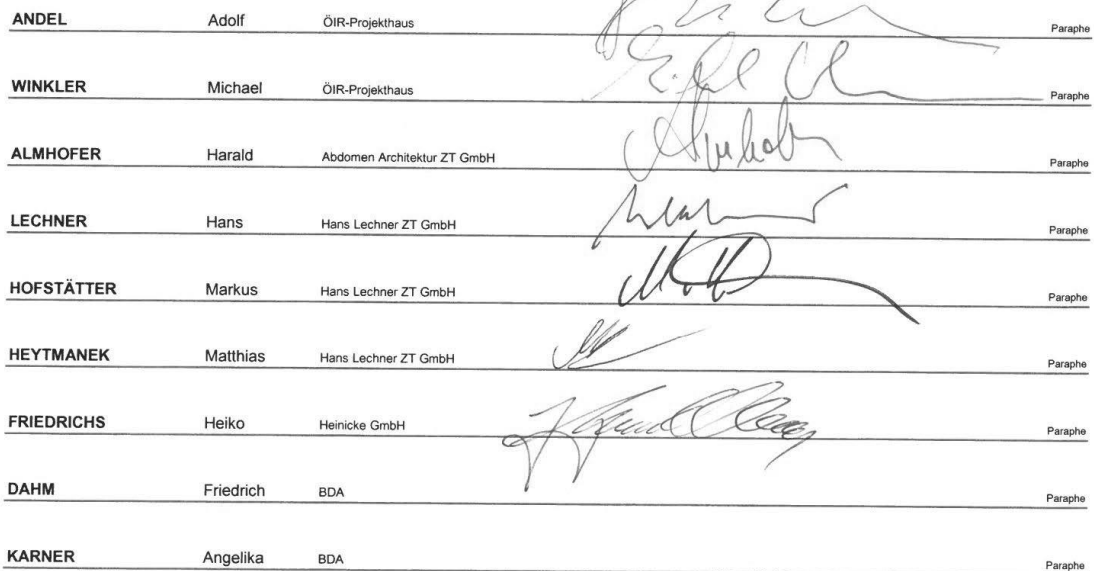 ANDEL Adolf ÖIR-Projekthaus Paraphe
WINKLER Michael ÖIR-Projekthaus Paraphe
ALMHOFER Harald Abdomen Architektur ZT GmbH Paraphe
LECHNER Hans Hans Lechner ZT GmbH Paraphe
HOFSTÄTTER Markus Hans Lechner ZT GmbH Paraphe
HEYTMANEK Matthias Hans Lechner ZT GmbH Paraphe
FRIEDRICHS Heiko Heinicke GmbH Paraphe
DAHM Friedrich BDA Paraphe
KARNER Angelika BDA Paraphe